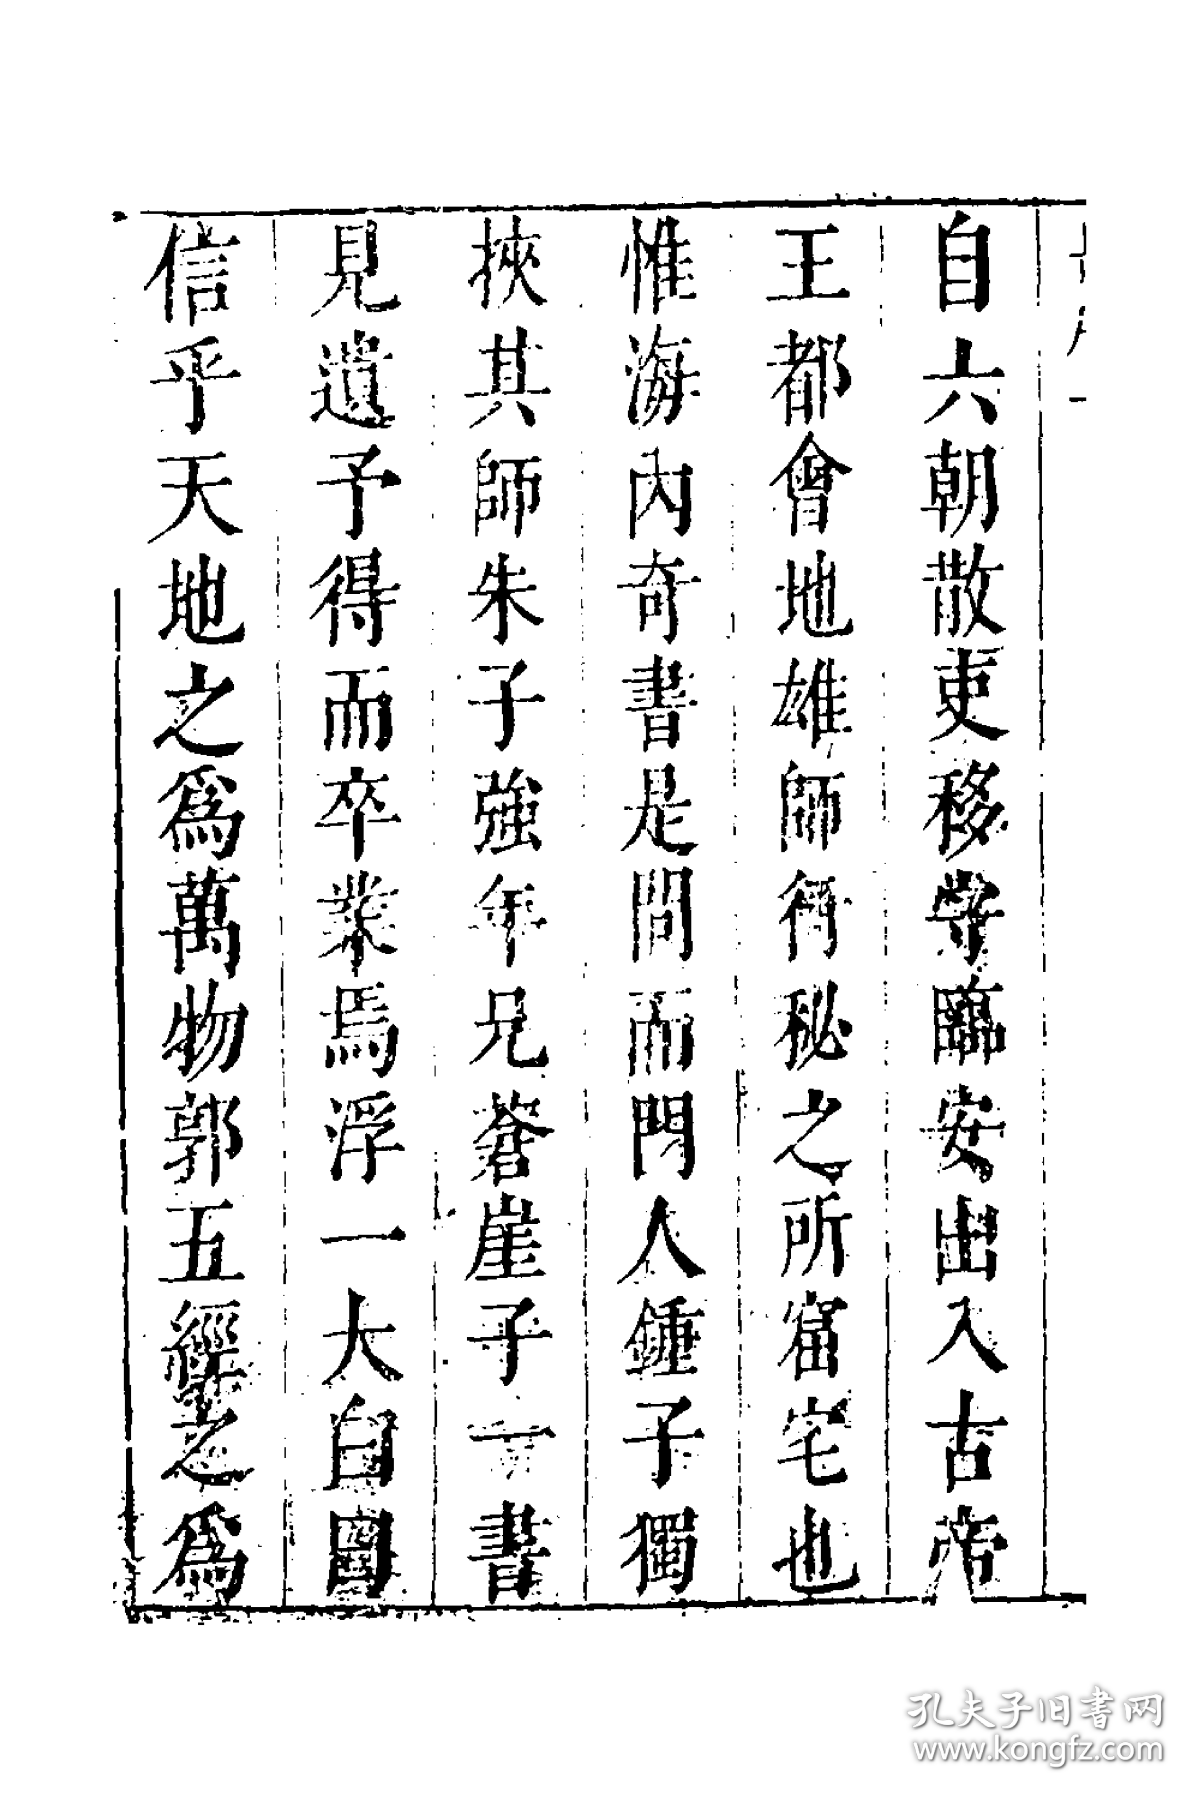 自六朝散吏移守臨安出入古帝
王都會地雄師秘之所宅也
惟海內奇書是問而門人鍾子獨
挾其師朱子強年兄蒼崖子一書
見遺予得而卒業焉浮一大白曰
信乎天地之爲萬物郭五經之爲
孔夫子旧书网
www.kongfz.com